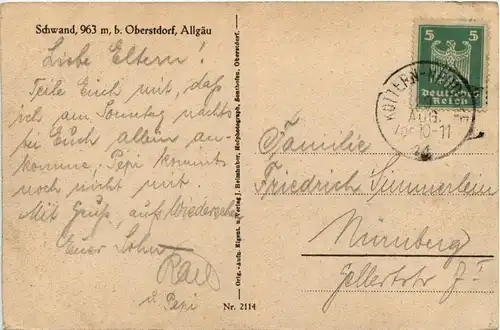 Schwand, 963 m, b. Oberstdorf, Allgäu
Liebe Eltern!
Teile Euch mit, daß
ich am Sonntag nachts
bei Euch allein an-
komme, Pepi kommt
noch nicht mit.
Mit Gruß, aufs Wiedersehen
Euer Sohn
Karl
u. Pepi
Nr. 2114
Orig.-Aufn. Eigent. u. Verlag J. Heimhuber, Hofphotograph, Sonthofen, Oberstdorf.
5 5
Deutsches
Reich
KOTTERN-
AUG.
10-11
Familie
Friedrich Simmerlein
Nürnberg
Gellertstr.